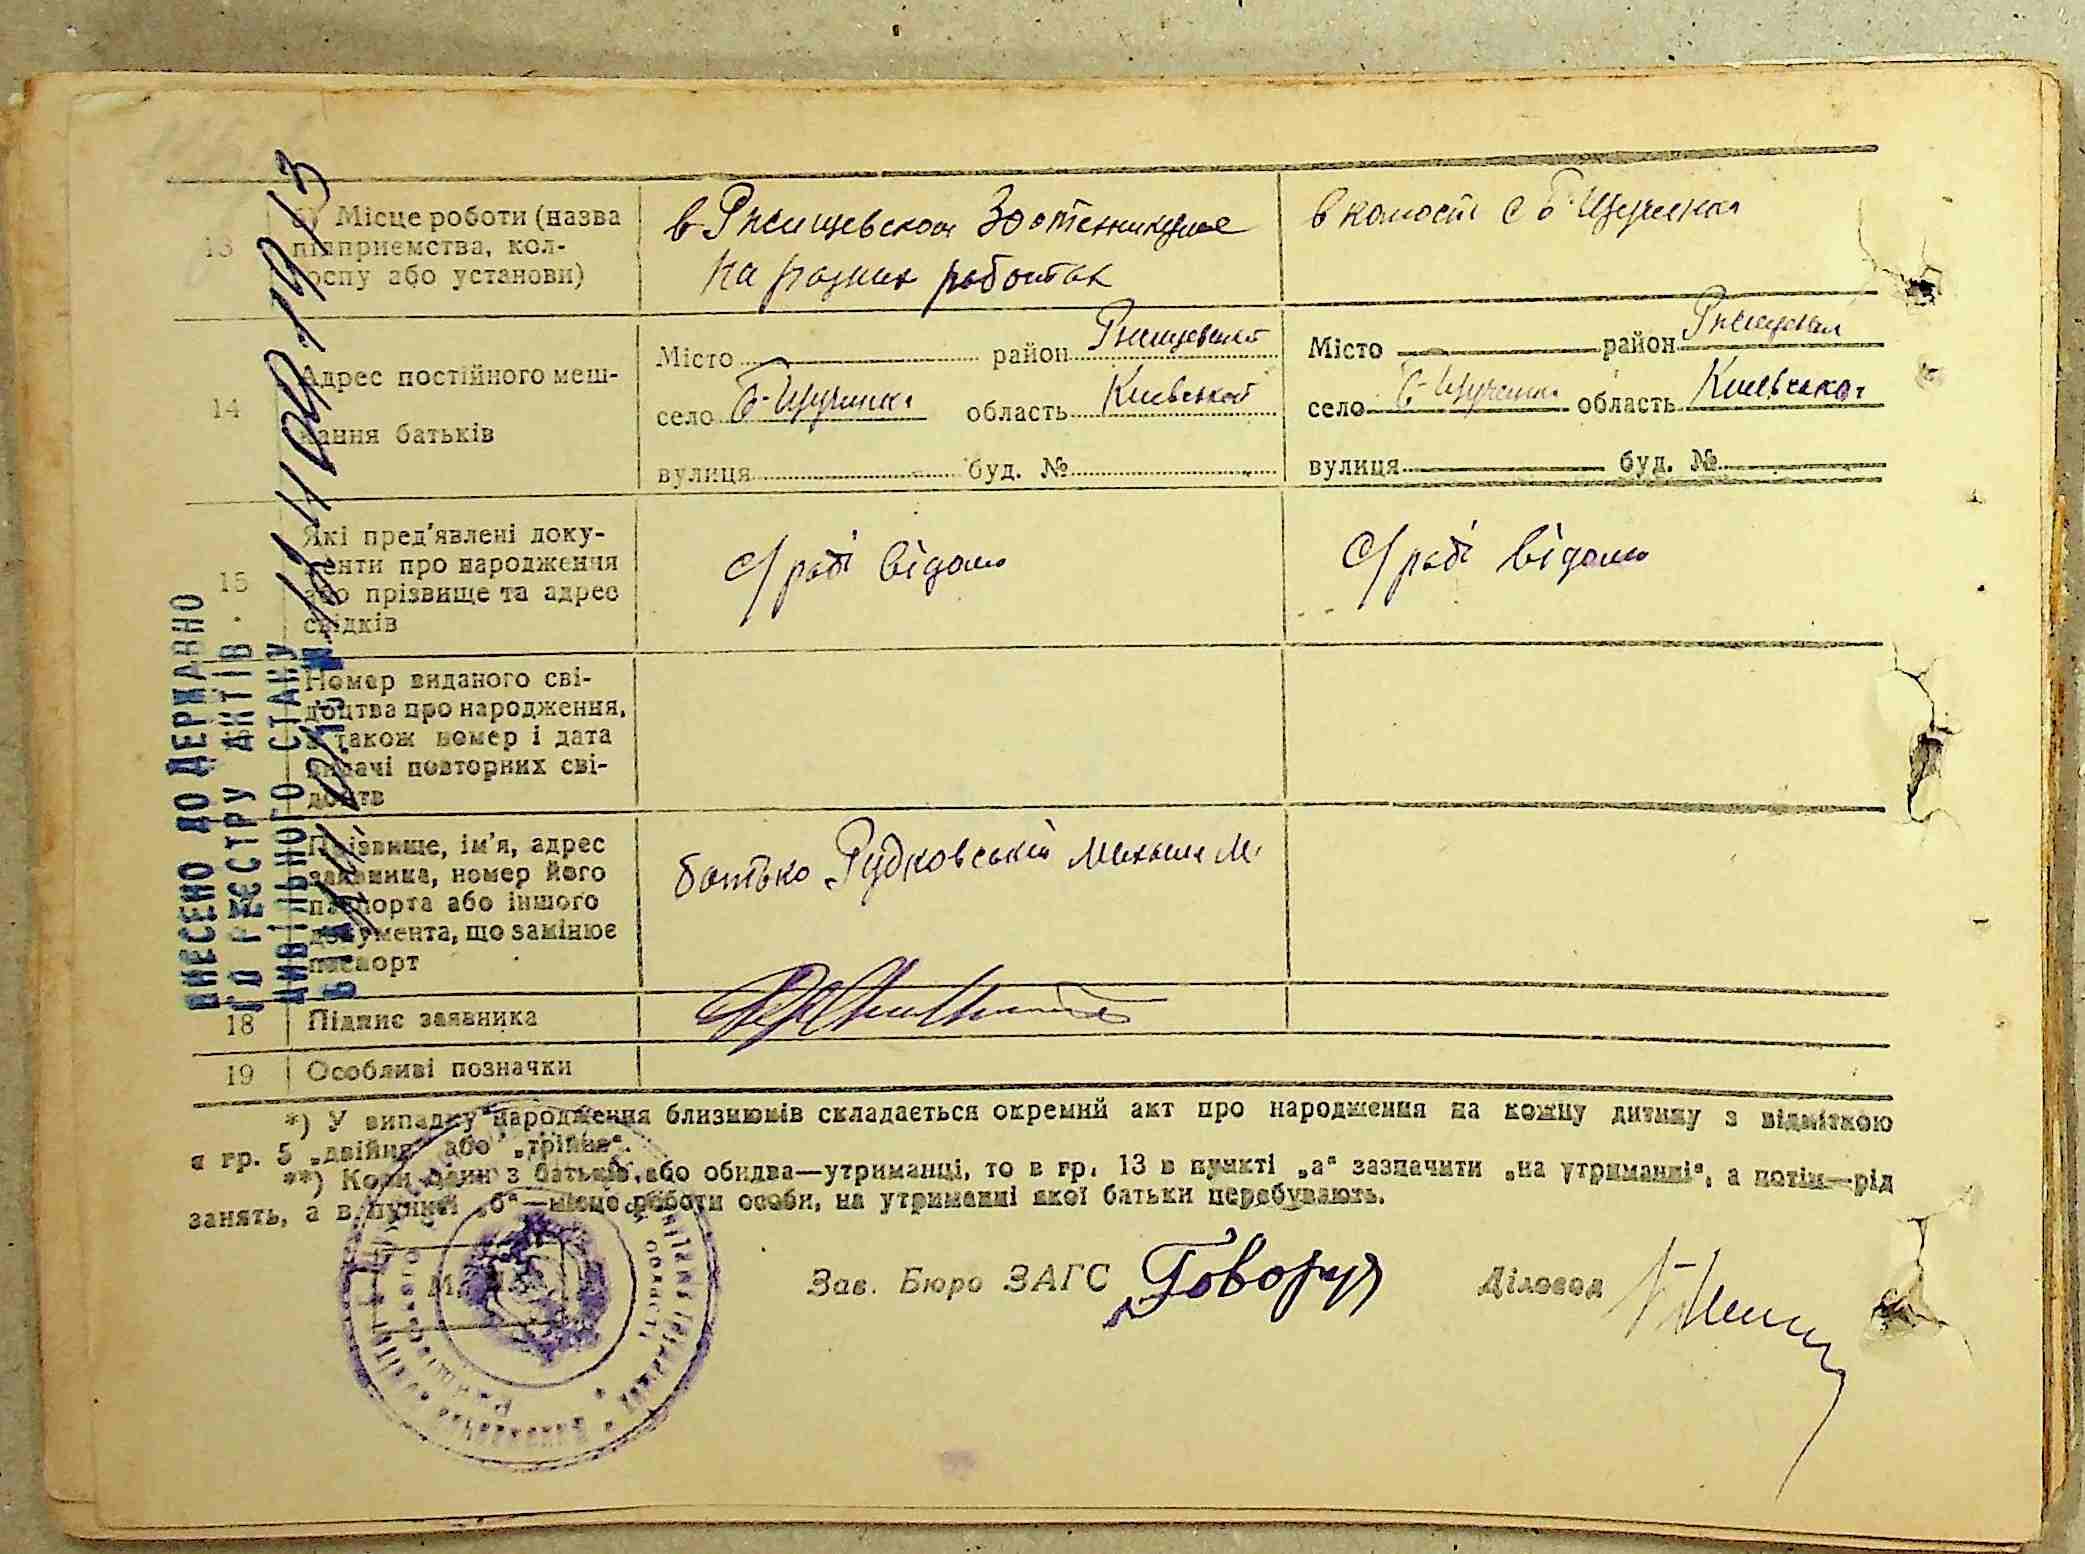 13 Місце роботи (назва
підприємства, кол-
госпу або установи)
в Ржищевском Зоотехникуме
на разних работах
в колгості с Б Щучинка
14 Адрес постійного меш-
кання батьків
Місто район Ржищевский
село Б-Щучинка область Киевской
вулиця буд. №
Місто район Ржищевский
село Б-Щучинка область Киевська
вулиця буд. №
15 Які пред'явлені доку-
менти про народження
або прізвище та адрес
свідків
с/раді відомо
с/раді відомо
Номер виданого сві-
доцтва про народження,
а також номер і дата
видачі повторних сві-
доцтв
Прізвище, ім'я, адрес
заявника, номер його
паспорта або іншого
документа, що замінює
паспорт
батько Рудковський Михаил М.
18 Підпис заявника
19 Особливі позначки
*) У випадку народження близнюків складається окремий акт про народження на кожну дитину з відміткою
в гр. 5 „двійня" або „трійня".
**) Коли один з батьків або обидва—утриманці, то в гр. 13 в пункті „а" зазначити „на утриманні", а потім—рід
занять, а в пункті „б"—місце роботи особи, на утриманні якої батьки перебувають.
М.
Зав. Бюро ЗАГС Говорун
Діловод
ВНЕСЕНО ДО ДЕРЖАВНО
ГО РЕЄСТРУ АКТІВ
ЦИВІЛЬНОГО СТАНУ